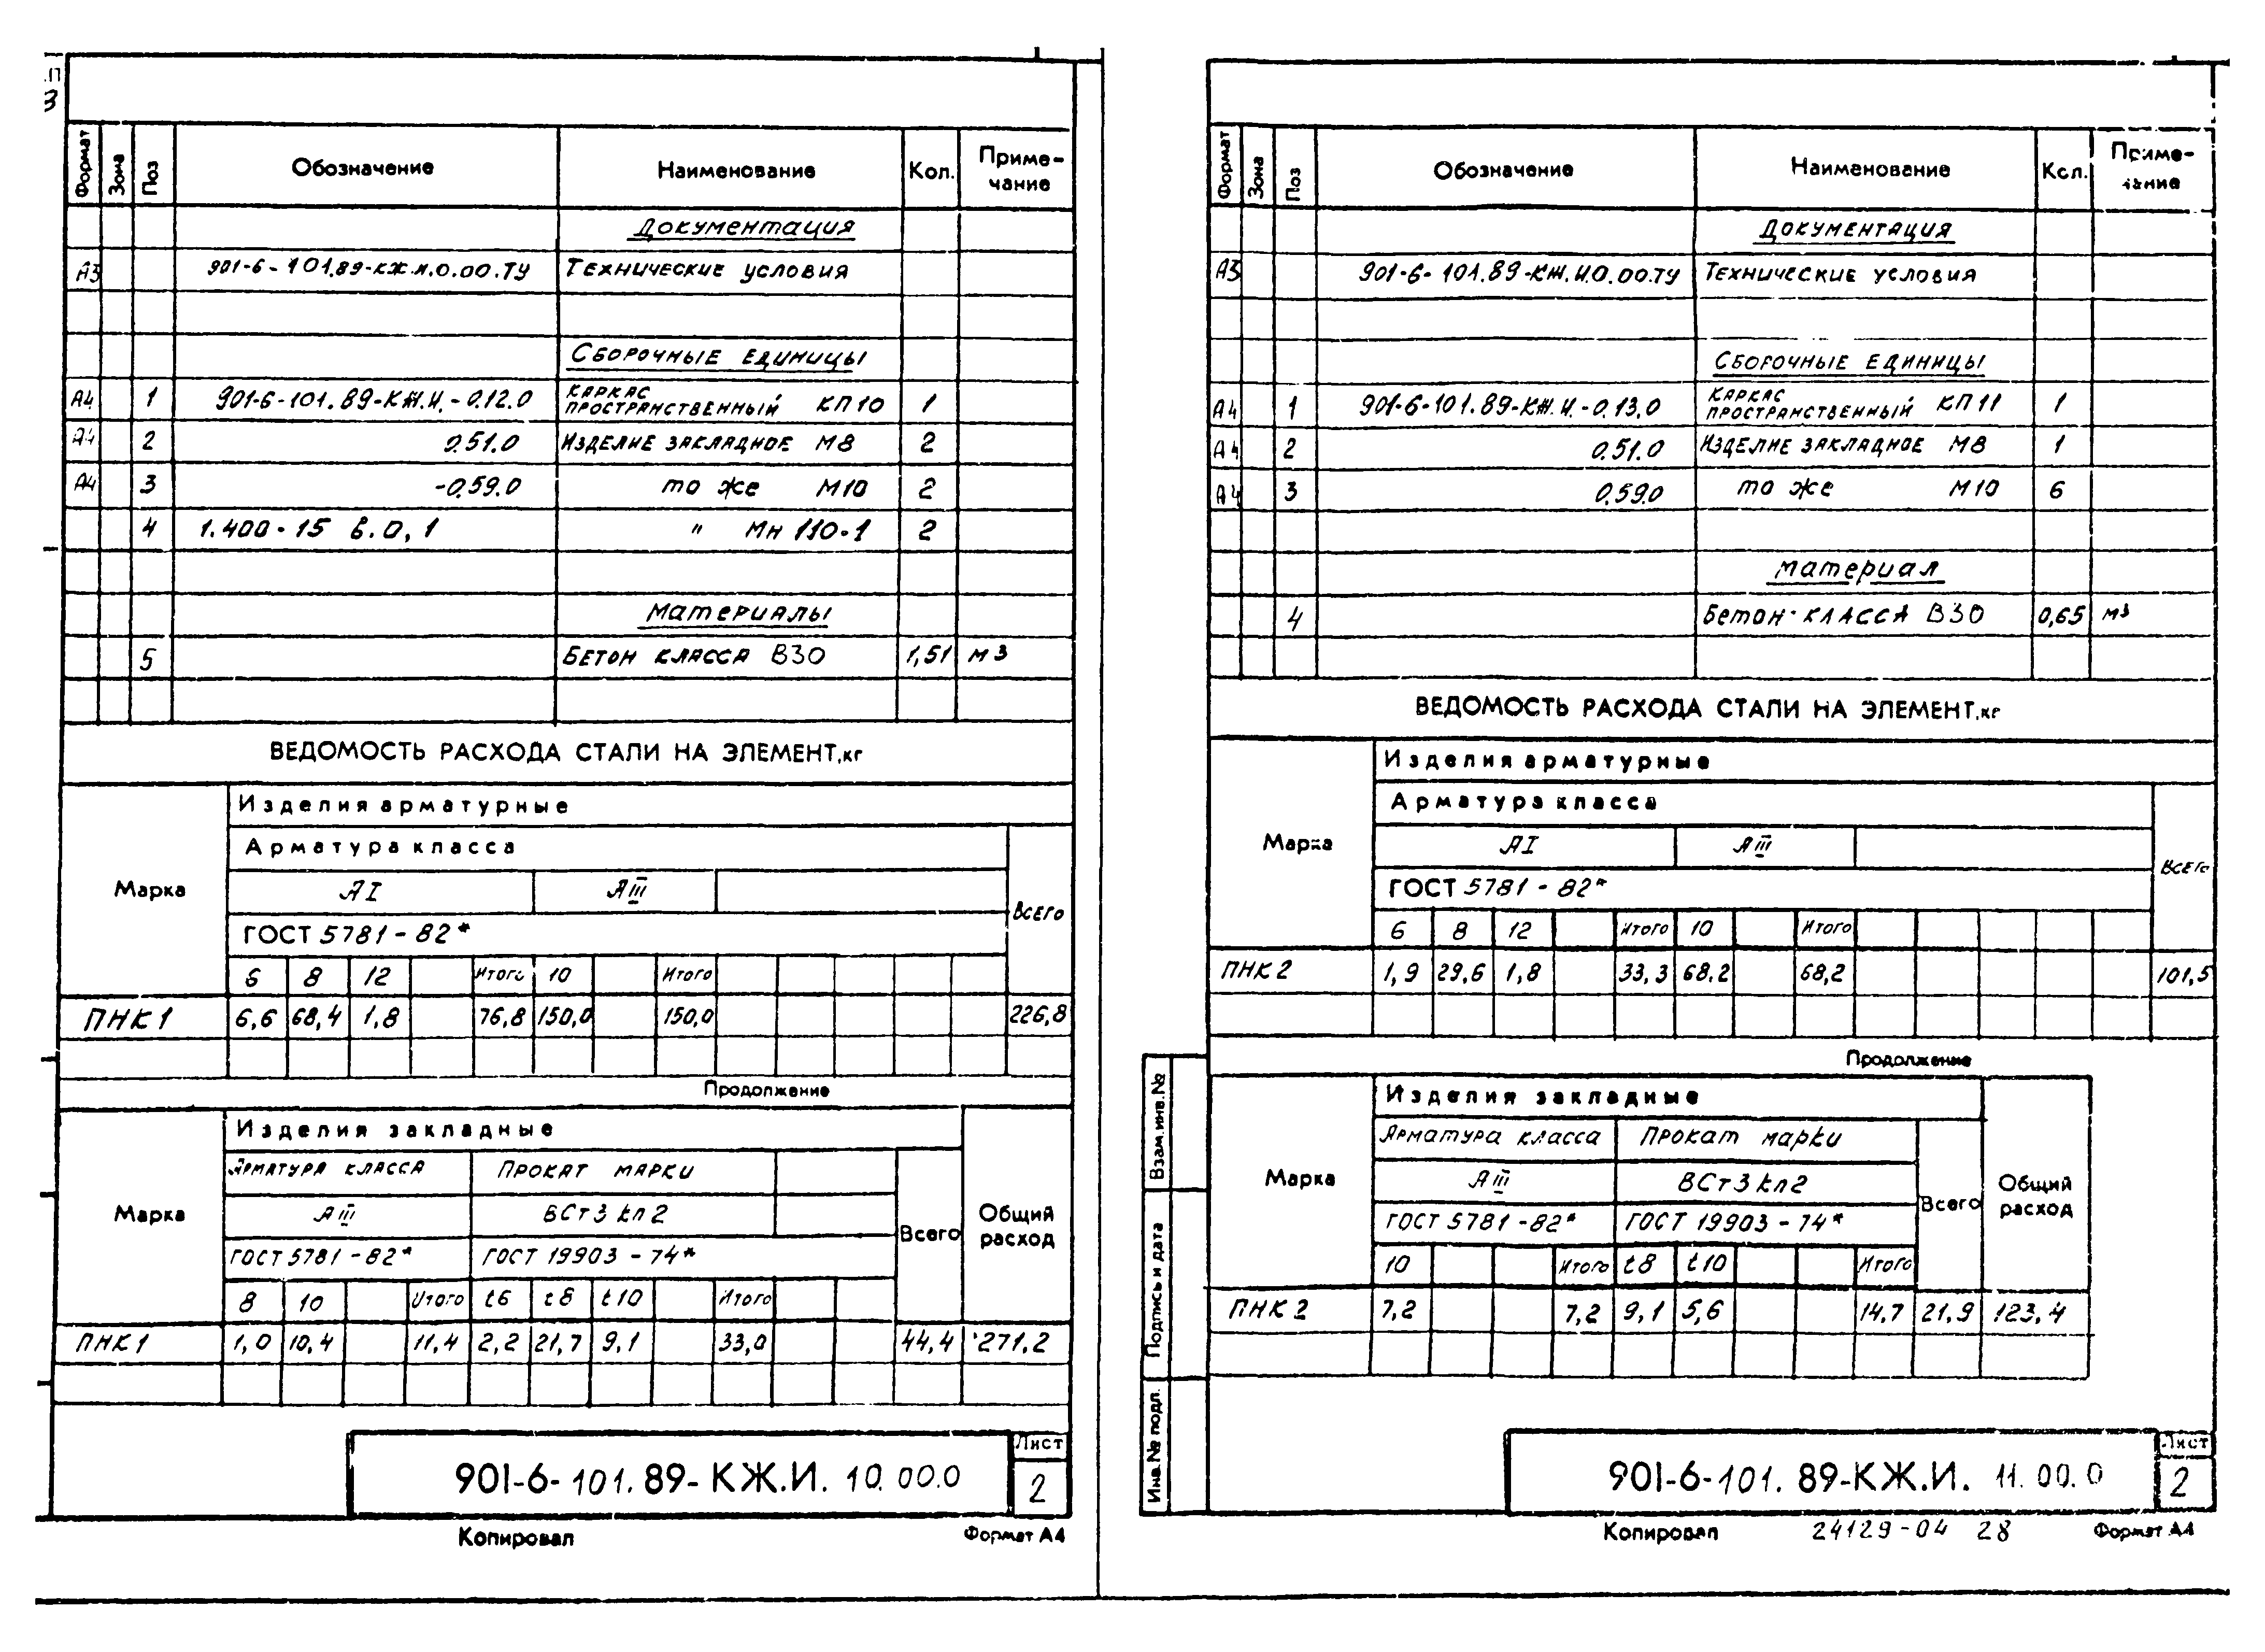 .П
3
Формат Зона Поз Обозначение Наименование Кол. Приме-чание
Документация
А3 901-6-101.89-КЖ.И.0.00.ТУ Технические условия
Сборочные единицы
А4 1 901-6-101.89-КЖ.И.-0.12.0 Каркас пространственный КП10 1
А4 2 0.51.0 Изделие закладное М8 2
А4 3 -0.59.0 то же М10 2
4 1.400-15 в.0,1 " Мн 110-1 2
Материалы
5 Бетон класса В30 1,51 м3
ВЕДОМОСТЬ РАСХОДА СТАЛИ НА ЭЛЕМЕНТ,кг
Марка Изделия арматурные
Арматура класса
АI АIII Всего
ГОСТ 5781-82*
6 8 12 Итого 10 Итого
ПНК1 6,6 68,4 1,8 76,8 150,0 150,0 226,8
Продолжение
Марка Изделия закладные
Арматура класса Прокат марки
АIII ВСт3кп2 Всего Общий расход
ГОСТ 5781-82* ГОСТ 19903-74*
8 10 Итого t6 t8 t10 Итого
ПНК1 1,0 10,4 11,4 2,2 21,7 9,1 33,0 44,4 271.2
901-6-101.89-КЖ.И. 10.00.0 Лист 2
Копировал Формат А4
Формат Зона Поз Обозначение Наименование Кол. Приме-чание
Документация
А3 901-6-101.89-КЖ.И.0.00.ТУ Технические условия
Сборочные единицы
А4 1 901-6-101.89-КЖ.И.-0.13.0 Каркас пространственный КП11 1
А4 2 0.51.0 Изделие закладное М8 1
А4 3 0.59.0 то же М10 6
Материал
4 Бетон класса В30 0,65 м3
ВЕДОМОСТЬ РАСХОДА СТАЛИ НА ЭЛЕМЕНТ,кг
Марка Изделия арматурные
Арматура класса
АI АIII Всего
ГОСТ 5781-82*
6 8 12 Итого 10 Итого
ПНК2 1,9 29,6 1,8 33,3 68,2 68,2 101,5
Продолжение
Марка Изделия закладные
Арматура класса Прокат марки
АIII ВСт3кп2 Всего Общий расход
ГОСТ 5781-82* ГОСТ 19903-74*
10 Итого t8 t10 Итого
ПНК2 7,2 7,2 9,1 5,6 14,7 21,9 123,4
Взам.инв.№
Подпись и дата
Инв.№ подл.
901-6-101.89-КЖ.И. 11.00.0 Лист 2
Копировал 24129-04 28 Формат А4